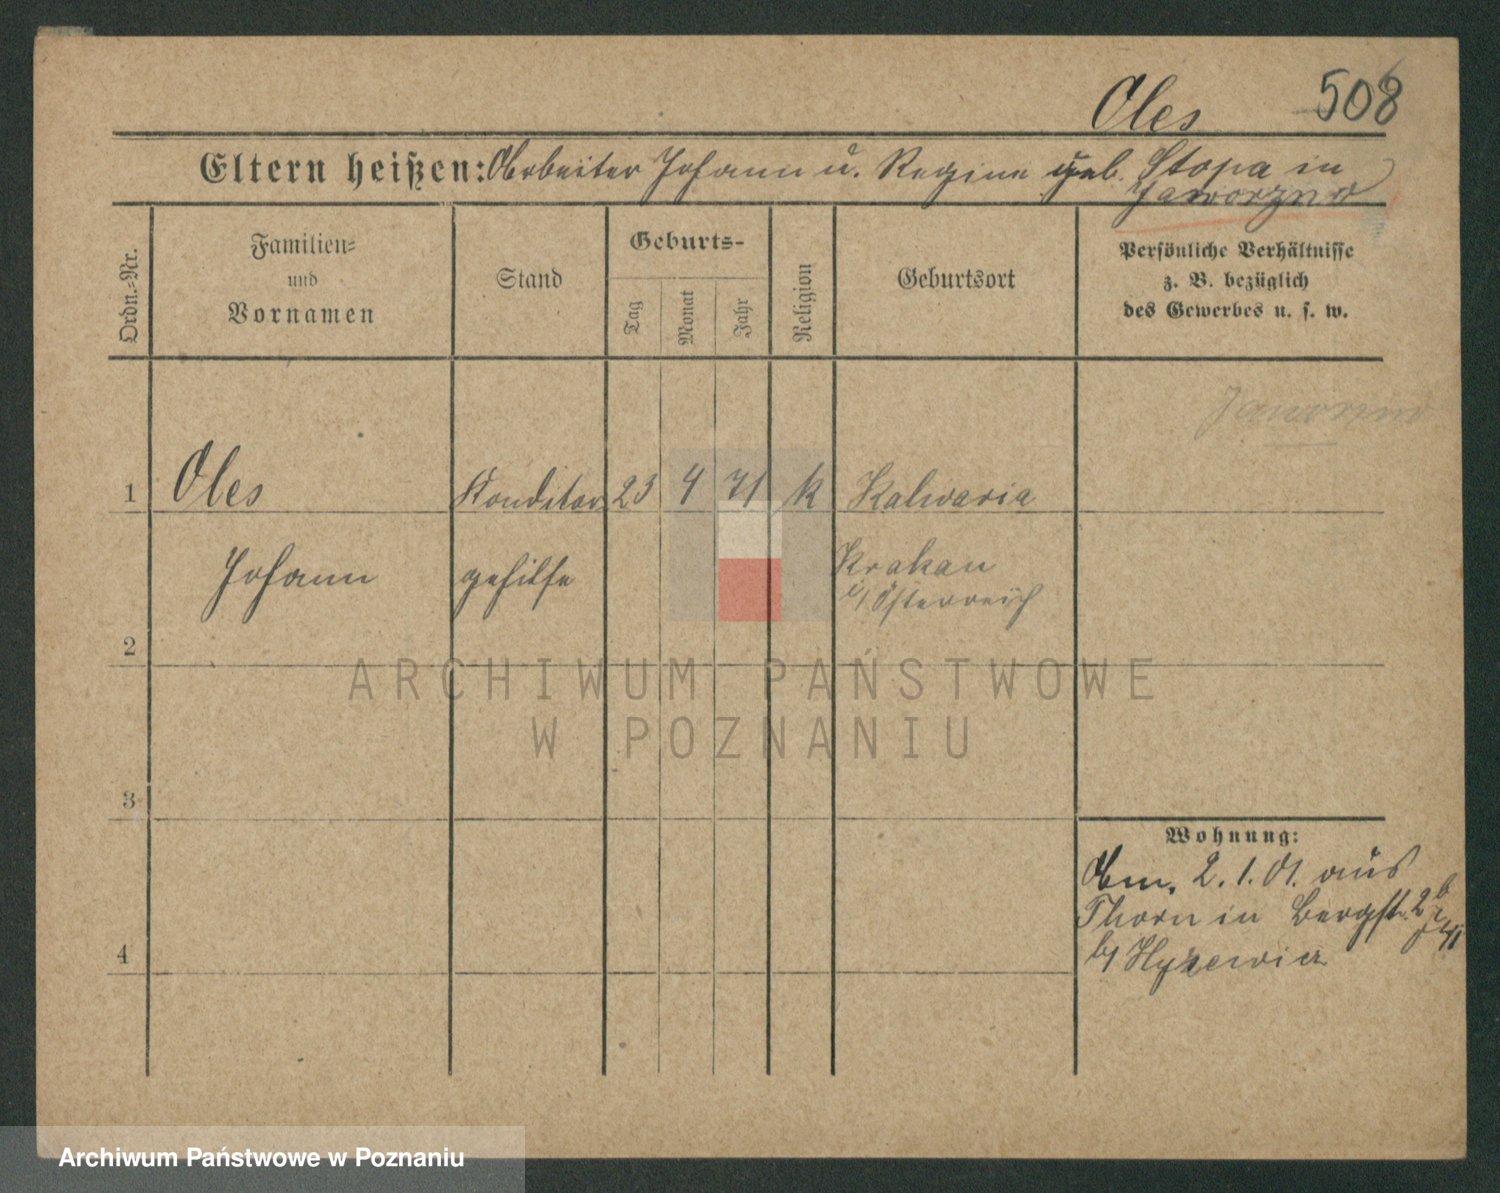 Oles 508
Eltern heißen: Arbeiter Johann u. Regine geb. Stopa in
Jaworzno
Ordn.-Nr.
Familien-
und
Vornamen
Stand
Geburts-
Tag
Monat
Jahr
Religion
Geburtsort
Persönliche Verhältnisse
z. B. bezüglich
des Gewerbes u. s. w.
Jaworzno
1 Oles Konditor 23 4 71 k Kalwaria
Johann gehilfe Krakau
i/Österreich
2
ARCHIWUM PAŃSTWOWE
W POZNANIU
3
Wohnung:
2.1.01. aus
Thorn in Bergstr. 2b
4
b/
Archiwum Państwowe w Poznaniu